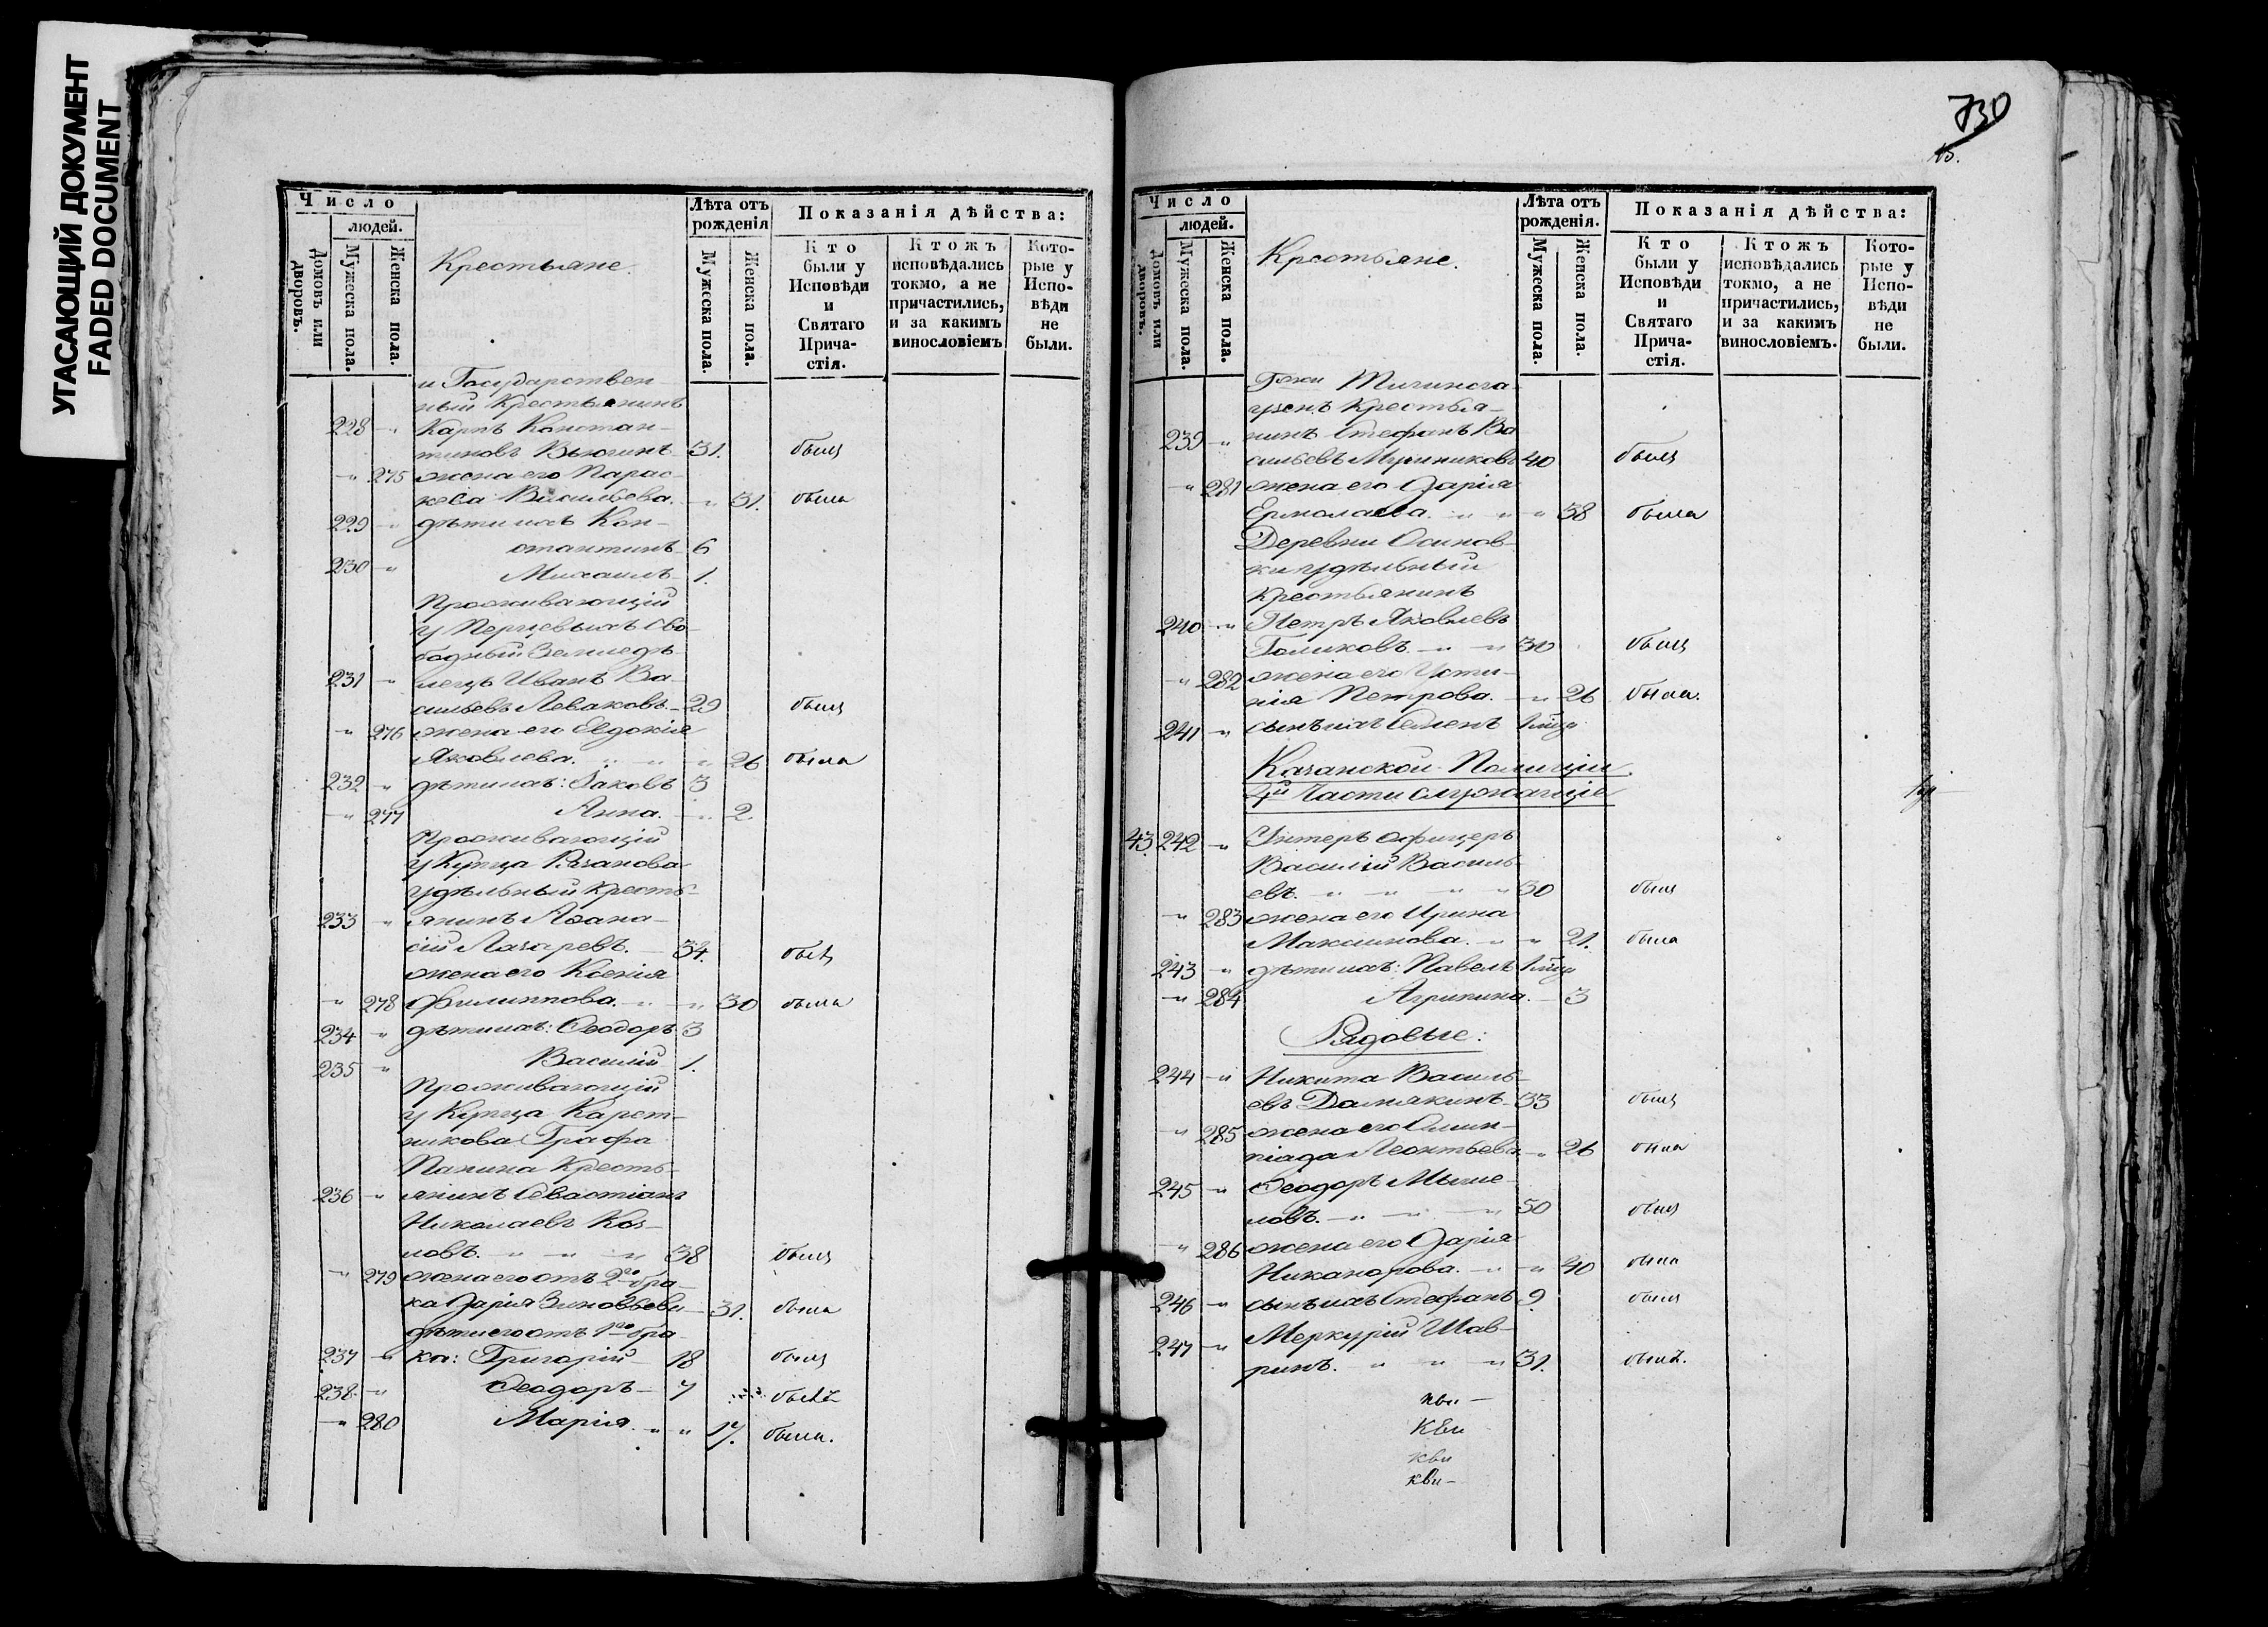 УГАСАЮЩИЙ ДОКУМЕНТ
FADED DOCUMENT
Число
людей.
Домовъ или дворовъ.
Мужеска пола.
Женска пола.
Крестьяне.
Лѣта отъ рожденія
Мужеска пола.
Женска пола.
Показанія дѣйства:
Кто были у Исповѣди и Святаго Прича-стія.
Ктожъ исповѣдались токмо, а не причастились, и за какимъ винословіемъ
Кото-рые у Испо-вѣди не были.
и Государствен-
ный Крестьянинъ
228 -"- Карпъ Констан-
тиновъ Вьюгинъ 31. былъ
-"- 275 жена его Парас-
кева Васильева. -"- 31. была
229 -"- дѣти ихъ Кон-
стантинъ 6
230 -"- Михаилъ 1.
Проживающій
у Перцевыхъ Сво-
бодный Земледѣ-
231 -"- лецъ Иванъ Ва-
сильевъ Леваковъ 29 былъ
-"- 276 жена его Евдокія
Яковлева. -"- 26 была
232 -"- дѣти ихъ: Іаковъ 3
-"- 277 Анна. -"- 2.
Проживающій
у Купца
удѣльный кресть-
233 -"- янинъ Аѳана-
сій Лазаревъ. 34. былъ
жена его Ксенія
-"- 278 Филиппова. -"- 30 была
234 -"- дѣти ихъ: Ѳеодоръ 3
235 -"- Василій 1.
Проживающій
у Купца Карет-
никова Графа
Панина Кресть-
236 -"- янинъ Севастіанъ
Николаевъ Коз-
ловъ. -"- 38 былъ
-"- 279 жена его отъ 2го бра-
ка Дарія Зиновьева 31. была
дѣти его отъ 1го бра-
237 -"- ка: Григорій 18 былъ
238. -"- Ѳеодоръ 7 былъ
-"- 280 Марія. -"- 17. была.
730
15.
Число
людей.
Домовъ или дворовъ.
Мужеска пола.
Женска пола.
Крестьяне.
Лѣта отъ рожденія.
Мужеска пола.
Женска пола.
Показанія дѣйства:
Кто были у Исповѣди и Святаго Прича-стія.
Ктожъ исповѣдались токмо, а не причастились, и за какимъ винословіемъ.
Кото-рые у Испо-вѣди не были.
Гжи
Крестья-
239 -"- нинъ Стефанъ Ва
сильевъ 40 былъ
-"- 281 жена его Дарія
Ермолаева. -"- 38 была
Деревни Осинов-
ки удѣльный
Крестьянинъ
240 -"- Петръ Яковлевъ
Голиковъ. -"- 30 былъ
-"- 282 жена его Усти-
нія Петрова. -"- 26 была.
241 -"- сынъ ихъ Семенъ
Казанской Полиціи
4й Части служащіе
43. 242 -"- Унтеръ офицеръ
Василій Василь-
евъ. -"- 30 былъ
-"- 283 жена его Ирина
Максимова. -"- 21. была
243 -"- дѣти ихъ: Павелъ
-"- 284 Агрипина. 3
Рядовые:
244 -"- Никита Василь-
евъ Далякинъ 33 былъ
-"- 285 жена его Олим-
піада Леонтьева -"- 26 была
245 -"- Ѳеодоръ Мыше-
ловъ. -"- 50 былъ
-"- 286 жена его Дарія
Никанорова. -"- 40 была
246 -"- сынъ ихъ Стефанъ 9. былъ
247 -"- Меркурій Шав-
ринъ. -"- 31. былъ.
кви -
кви
кви
кви -